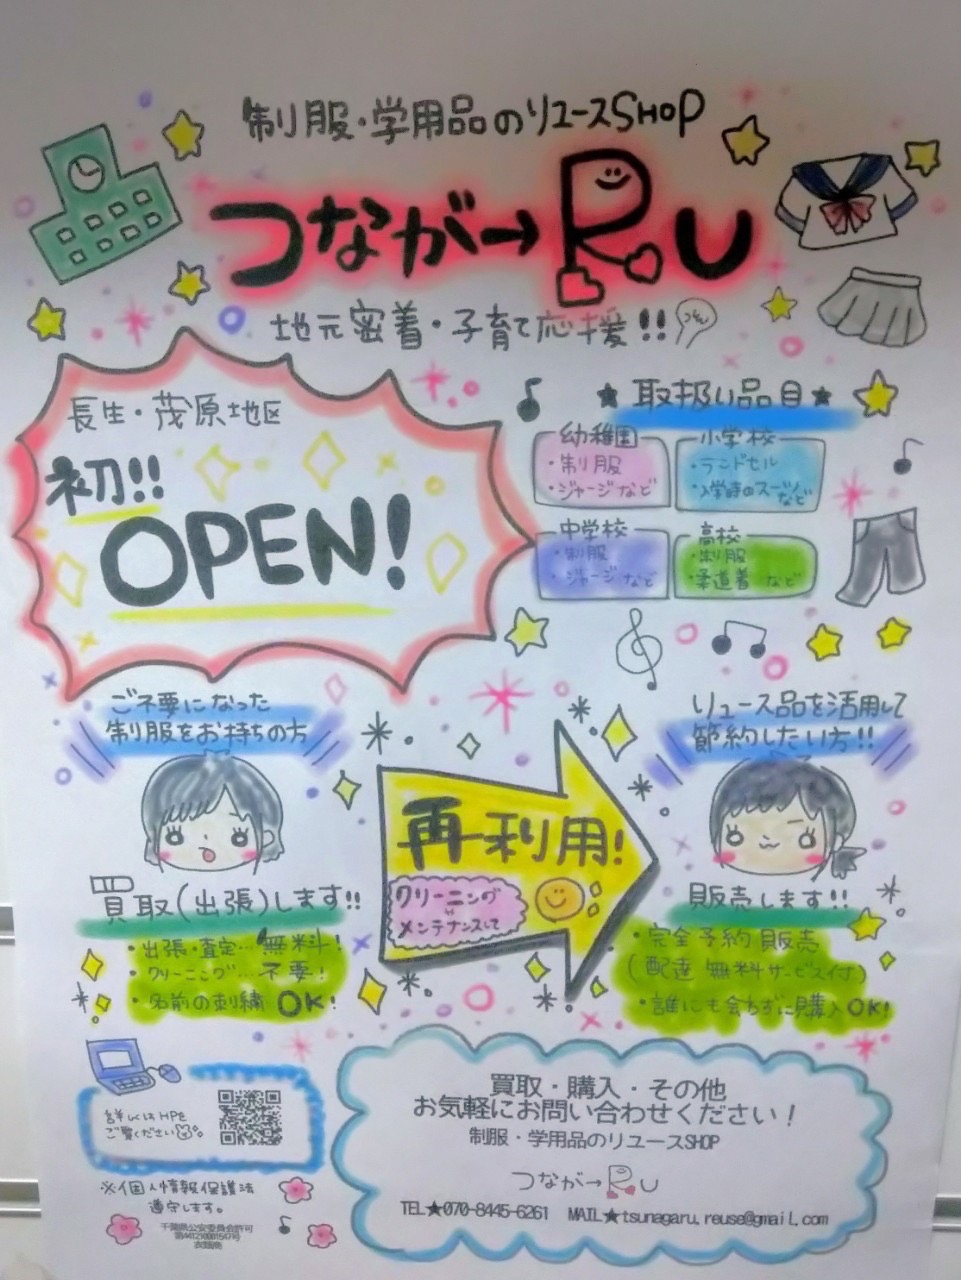 制服・学用品のリユースSHOP
つなが→Ru
地元密着・子育て応援!!
長生・茂原地区
初!!
OPEN!
★取扱い品目★
幼稚園
・制服
・ジャージなど
小学校
・ランドセル
・入学時のスーツなど
中学校
・制服
・ジャージなど
高校
・制服
・柔道着 など
ご不要になった
制服をお持ちの方
買取(出張)します!!
・出張・査定…無料!
・クリーニング…不要!
・名前の刺繍 OK!
再利用!
クリーニング
メンテナンスして
リユース品を活用して
節約したい方!!
販売します!!
・完全予約販売
(配達 無料サービス付)
・誰にも会わずに購入OK!
詳しくはHPを
ご覧ください
※個人情報保護法
遵守します。
千葉県公安委員会許可
買取・購入・その他
お気軽にお問い合わせください!
制服・学用品のリユースSHOP
つなが→Ru
TEL★070-8445-6261 MAIL★tsunagaru.reuse@gmail.com